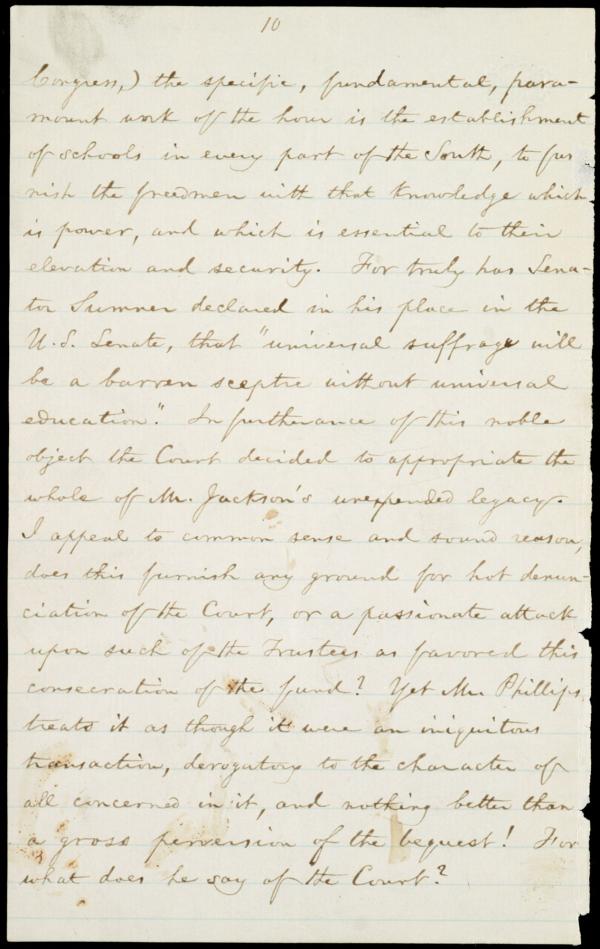 10
Congress,) the specific, fundamental, para-
mount work of the hour is the establishment
of schools in every part of the South, to fur
nish the freedmen with that knowledge which
is power, and which is essential to their
elevation and security. For truly has Sena-
tor Sumner declared in his place in the
U.S. Senate, that "universal suffrage will
be a barren sceptre without universal
education". In furtherance of this noble
object the Court decided to appropriate the
whole of Mr. Jackson's unexpended legacy.
I appeal to common sense and sound reason,
does this furnish any ground for hot denun-
ciation of the Court, or a passionate attack
upon such of the Trustees as favored this
consecration of the fund? Yet Mr. Phillips
treats it as though it were an iniquitous
transaction, derogatory to the character of
all concerned in it, and nothing better than
a gross perversion of the bequest! For
what does he say of the Court?